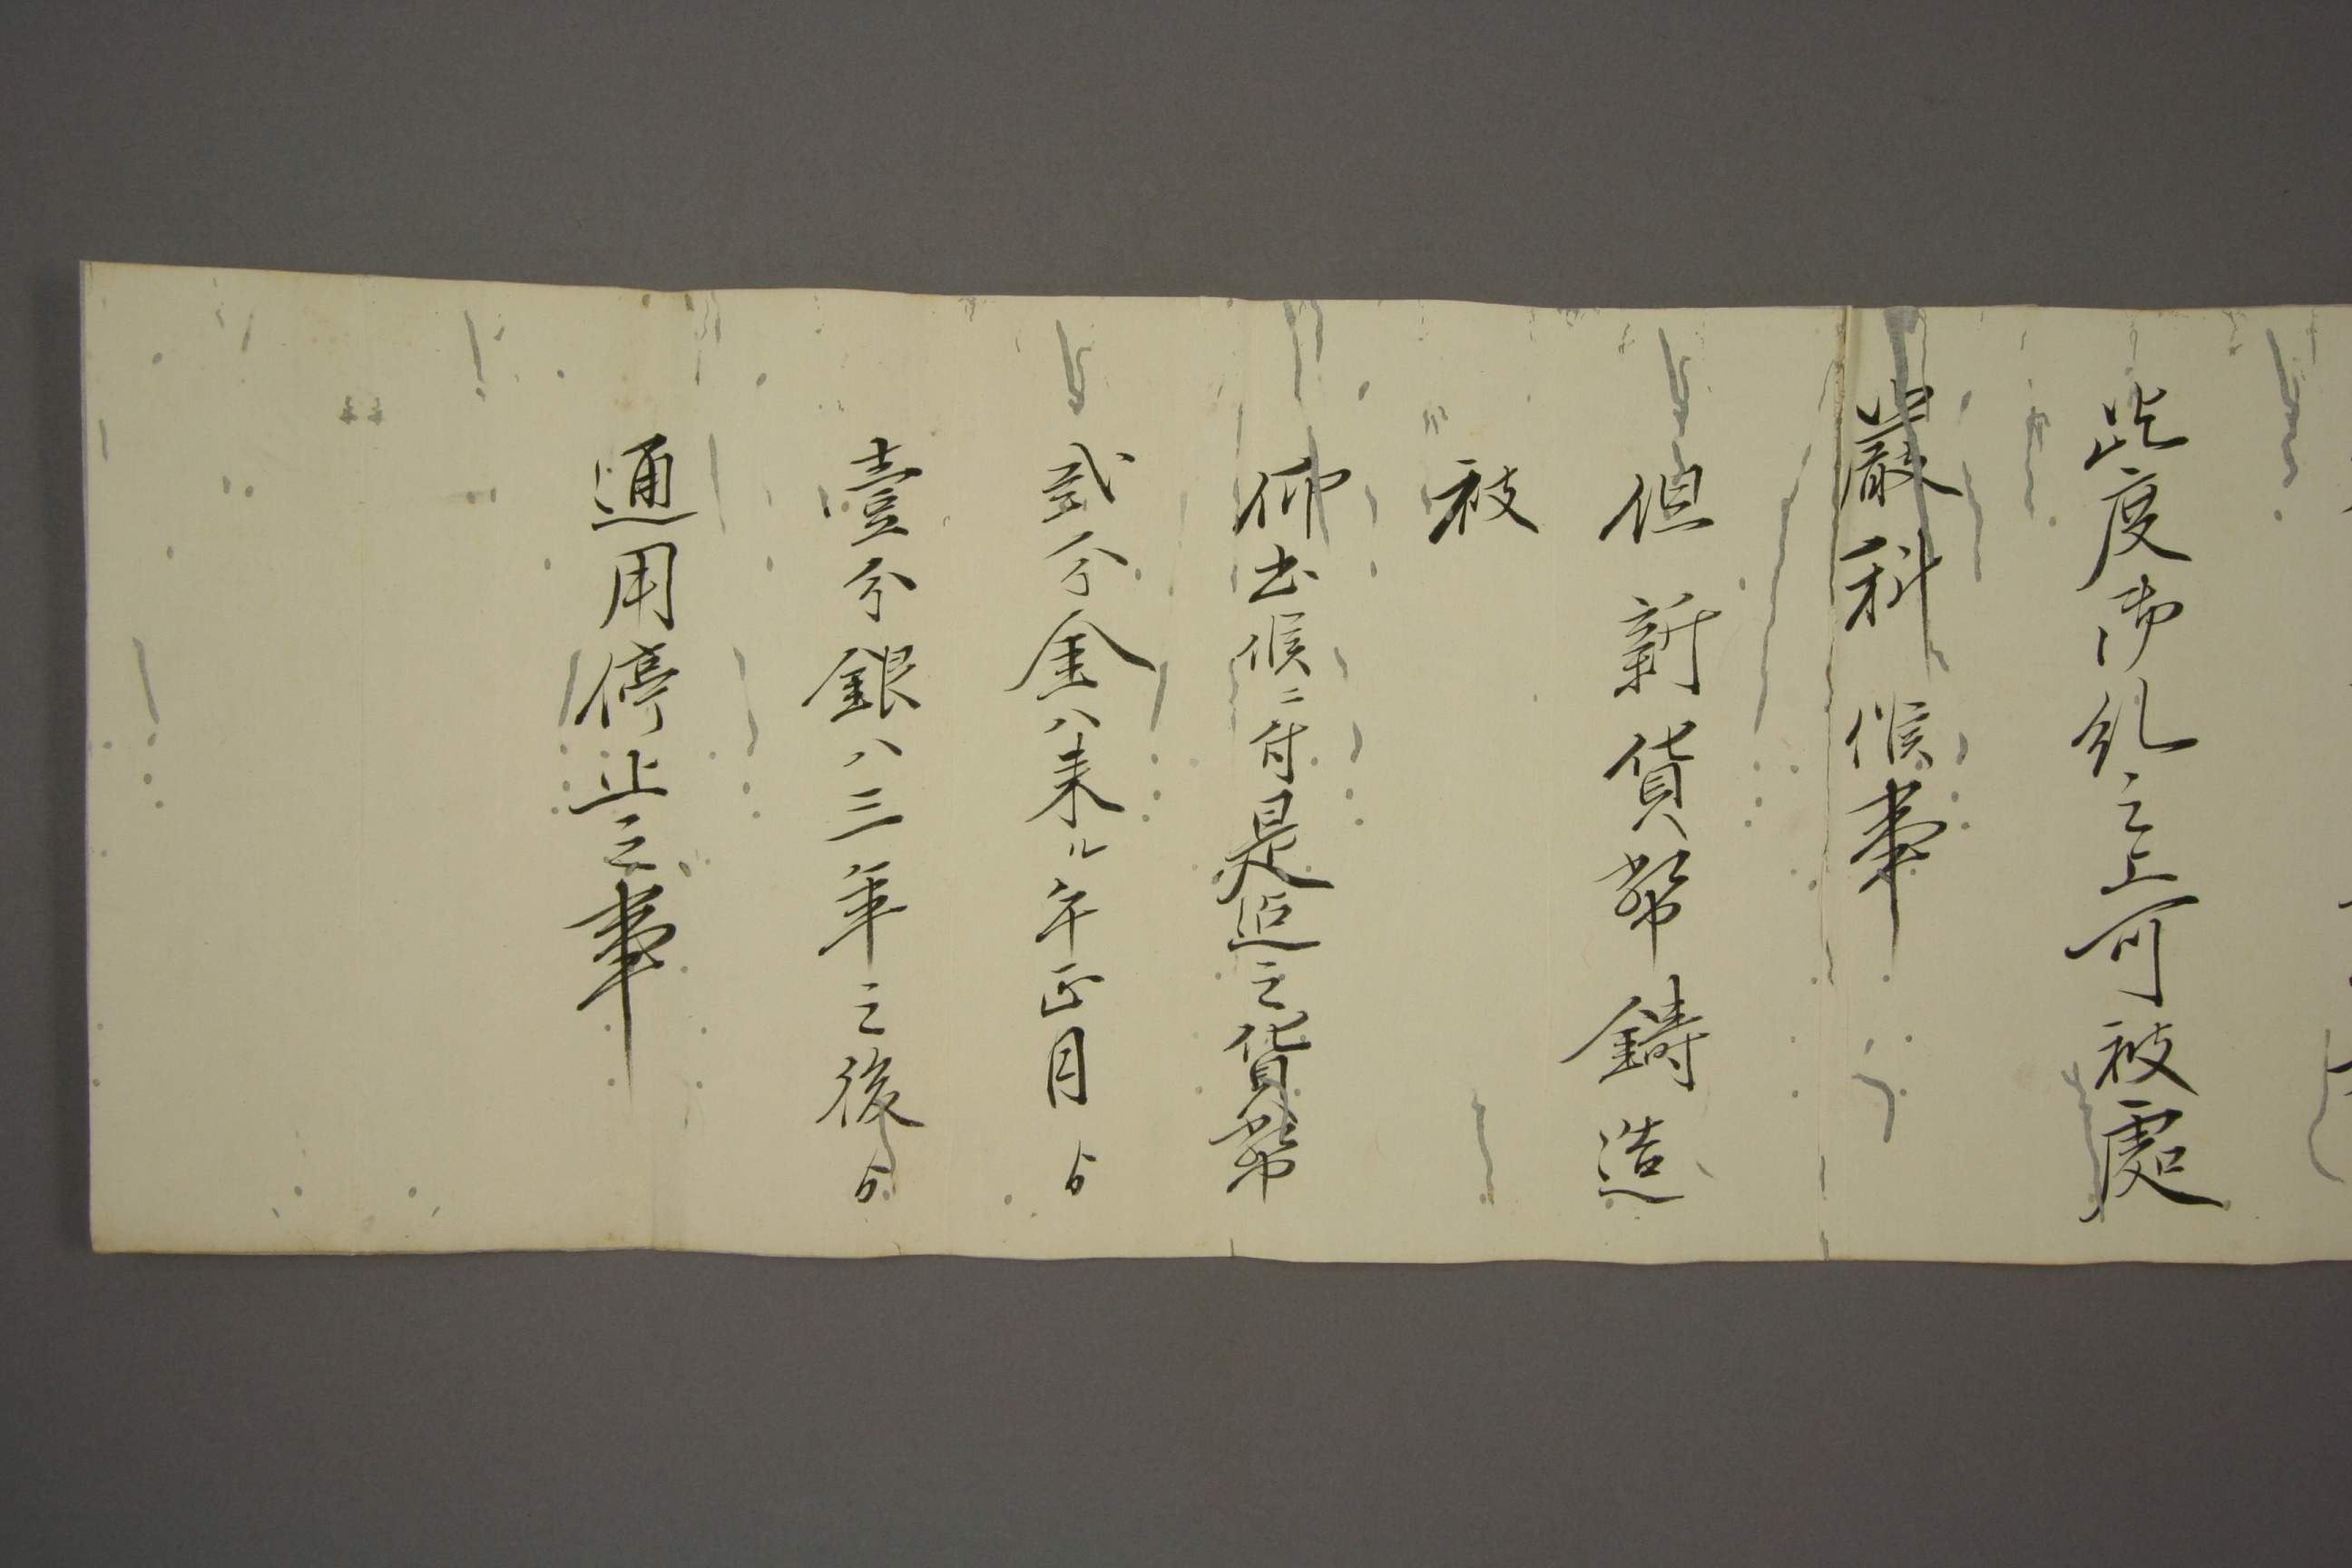 此度御糺之上可被處
嚴科候事
但新貨幣鑄造
被
仰出候ニ付是迄之貨幣
弐分金ハ来ル午正月ゟ
壹分銀ハ三年之後ゟ
通用停止之事